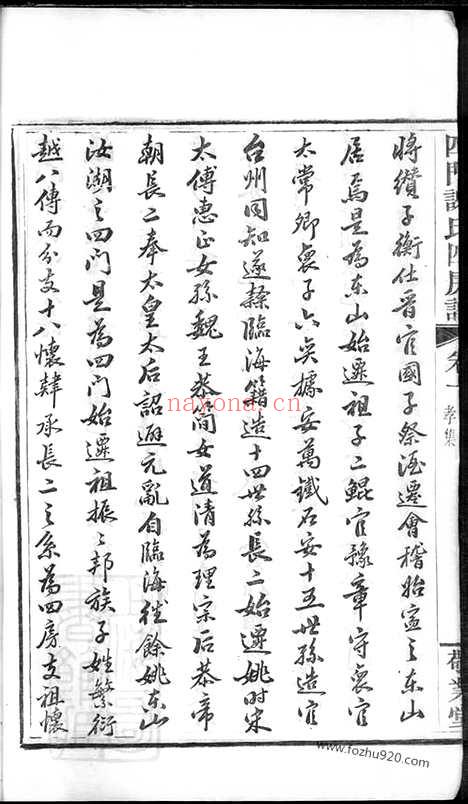 四門謝氏四房譜 卷一 孝集
樹業堂
將纘子衡仕晉官國子祭酒遷會稽始寧之東山
居焉是為東山始遷祖子二鯤官豫章守裒官
太常卿裒子六奕據安萬鐵石安十五世孫造官
台州同知遂隸臨海籍造十四世孫長二始遷姚時宋
太傅惠正女孫魏王恭簡女道清為理宗后恭帝
朝長二奉太皇太后詔避元亂自臨海徙餘姚東山
汝湖之四門是為四門始遷祖振振邦族子姓繁衍
越八傳而分支十八懷肆承長二之系為四房支祖懷
nayona.cn
www.fozhu920.com